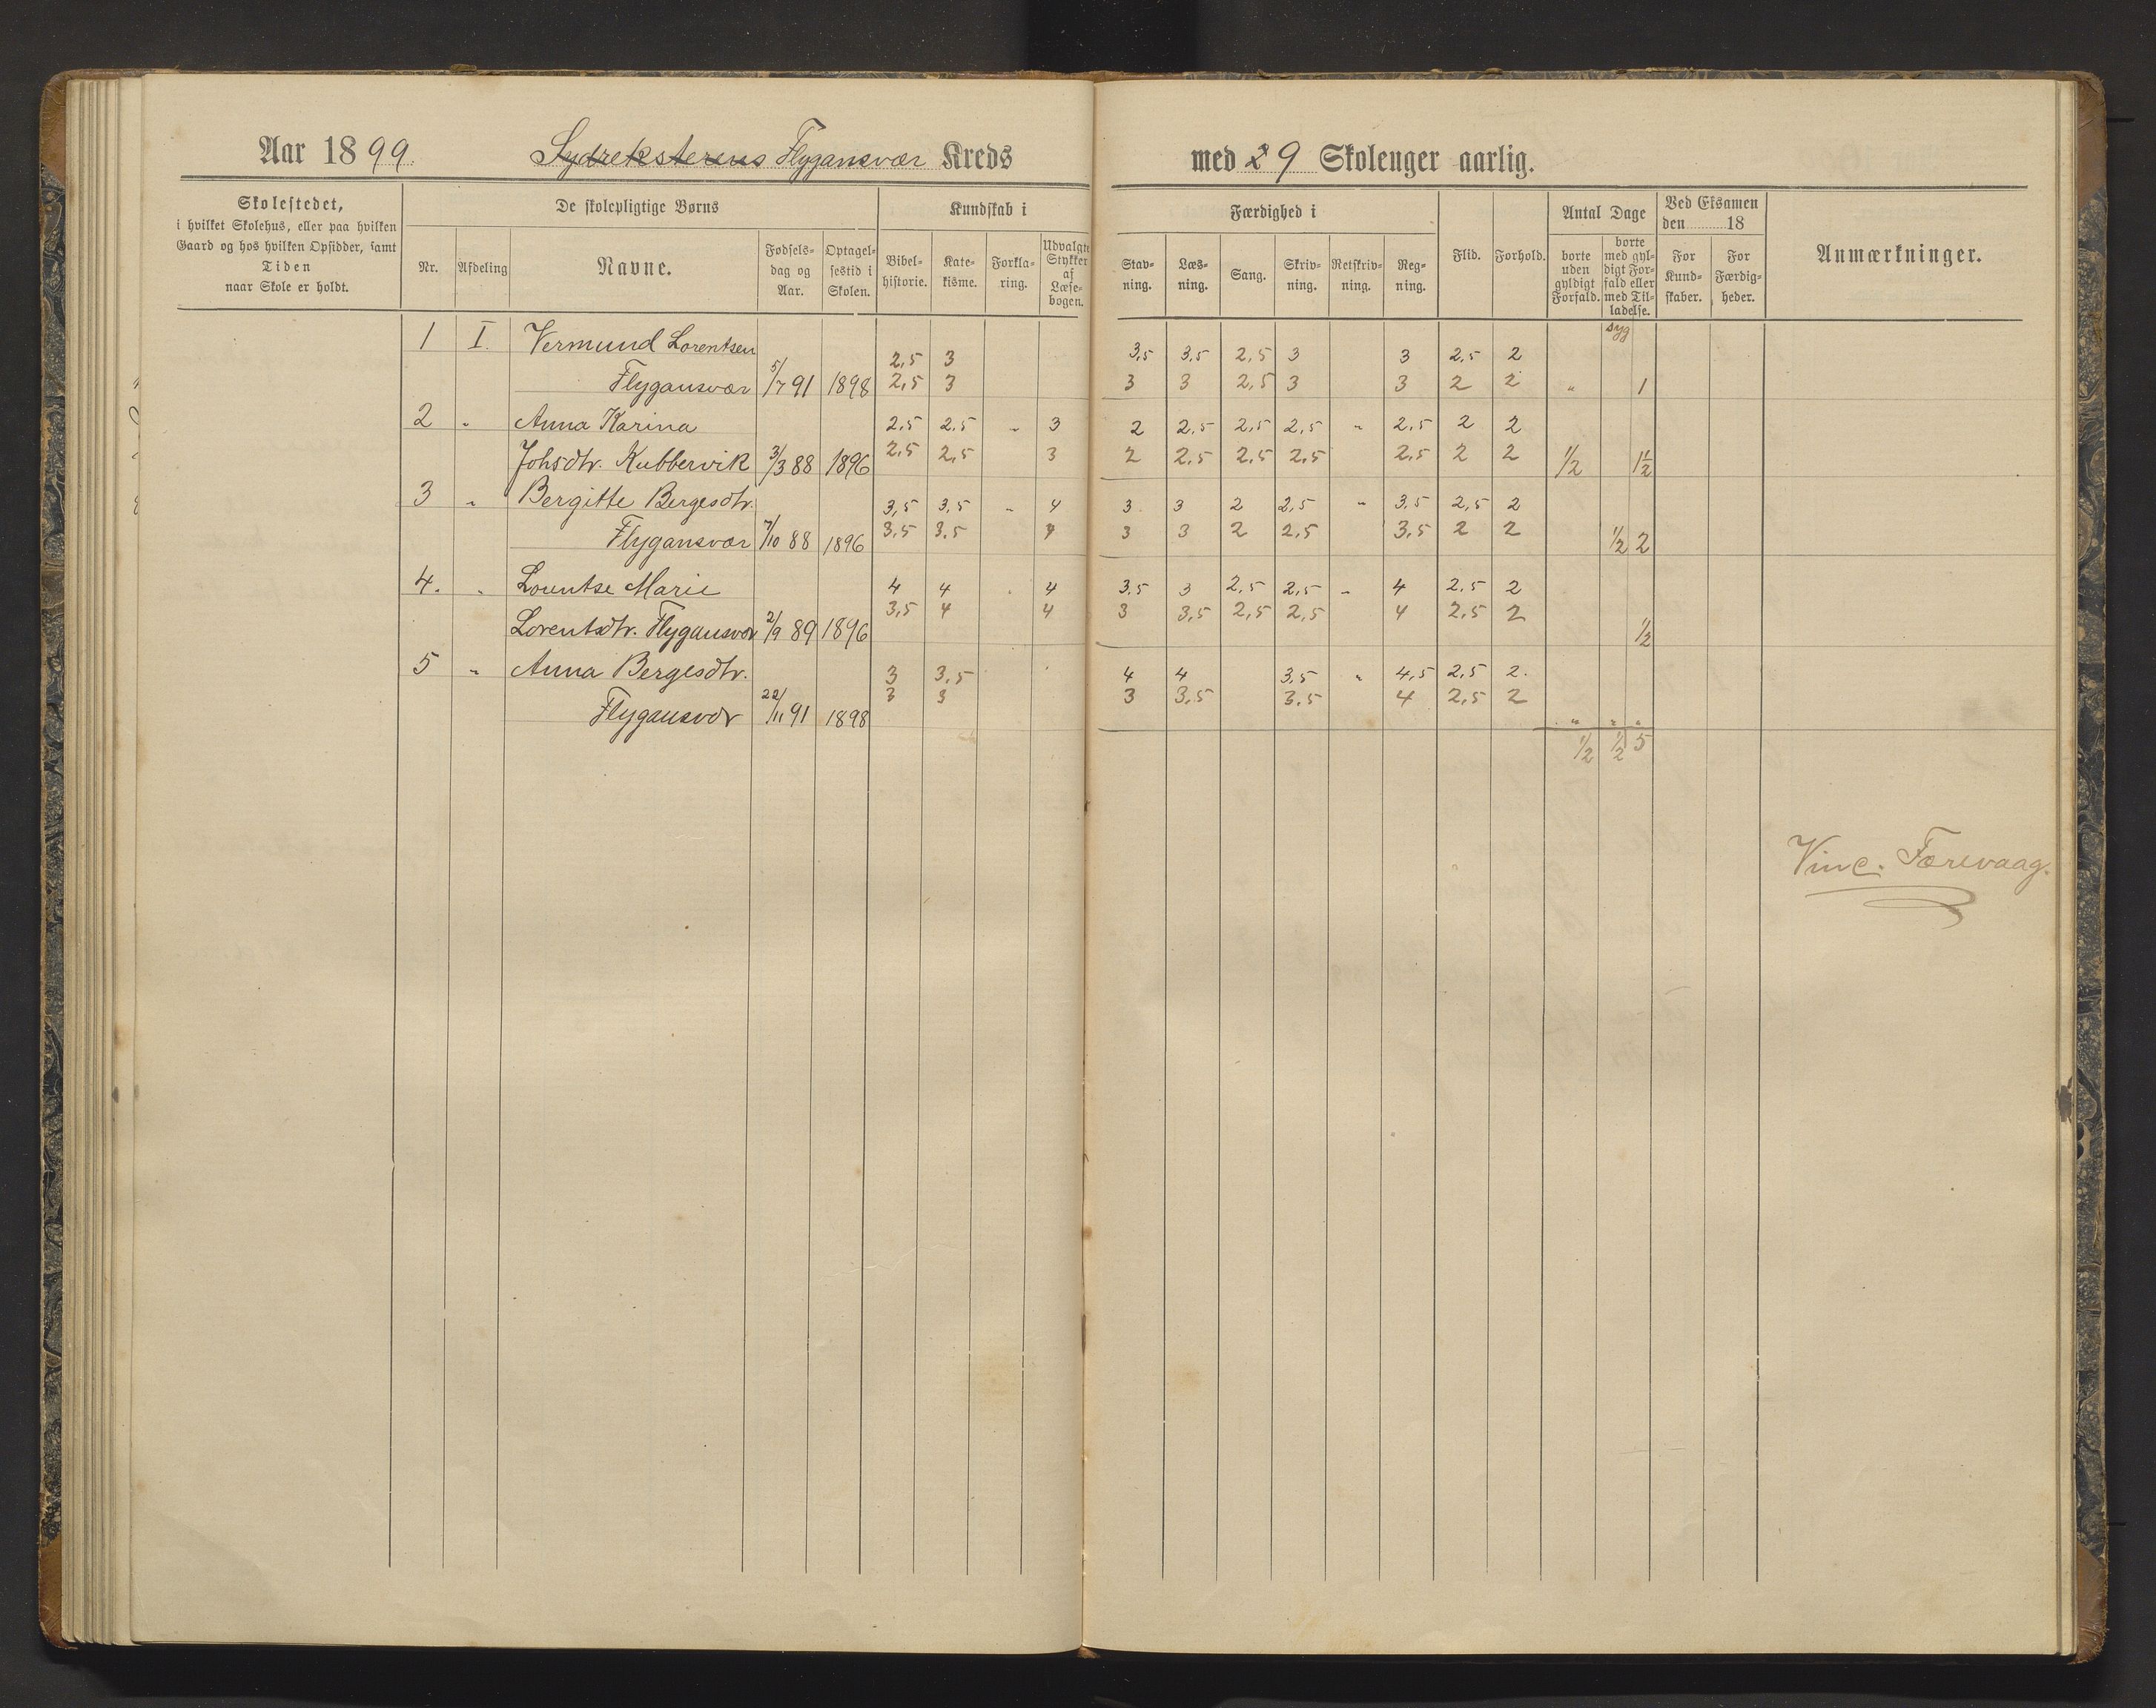 Aar 1899. Sydreksterens Flygansvær Kreds med 2 9 Skolenger aarlig.
Skolestedet,
i hvilket Skolehus, eller paa hvilken
Gaard og hos hvilken Opsidder, samt
Tiden
naar Skole er holdt.
De skolepligtige Børns
Nr. Afdeling Navne. Fødsels-dag og Aar. Optagel-sestid i Skolen.
Kundskab i
Bibel-historie. Kate-kisme. Forkla-ring. Udvalgte Stykker af Læse-bogen.
Færdighed i
Stav-ning. Læs-ning. Sang. Skriv-ning. Retskriv-ning. Reg-ning.
Flid. Forhold.
Antal Dage
borte uden gyldigt Forfald. borte med gyl-digt For-fald eller med Til-ladelse.
Ved Eksamen
den 18
For Kund-skaber. For Færdig-heder.
Anmærkninger.
syg
1 I. Vermund Lorentsen 2,5 3 3,5 3,5 2,5 3 3 2,5 2
Flygansvær 5/7 91 1898 2,5 3 3 3 2,5 3 3 2 2 " 1
2 " Anna Karina 2,5 2,5 " 3 2 2,5 2,5 2,5 " 2,5 2 2
Johsdtr. Kubbervik 3/3 88 1896 2,5 2,5 3 2 2,5 2,5 2,5 2,5 2 2 1/2 1 1/2
3 " Bergitte Bergesdtr. 3,5 3,5 " 4 3 3 2 2,5 " 3,5 2,5 2
Flygansvær 7/10 88 1896 3,5 3,5 4 3 3 2 2,5 3,5 2 2 1/2 2
4. " Lorentse Marie 4 4 " 4 3,5 3 2,5 2,5 " 4 2,5 2
Lorentsdtr. Flygansvær 2/9 89 1896 3,5 4 4 3 3,5 2,5 2,5 4 2,5 2 1/2
5 " Anna Bergesdtr. 3 3,5 4 4 3,5 " 4,5 2,5 2.
Flygansvær 22/11 91 1898 3 3 3 3,5 3,5 4 2,5 2 " " "
1/2 1/2 5
Vinc. Færevaag.